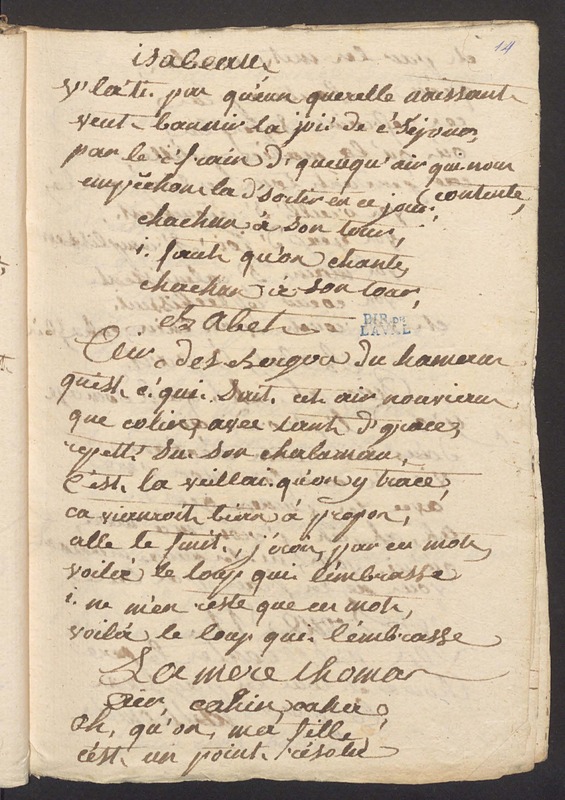 14
isabeau
v'la ti par qu'eun querelle naissant
veut bannir la joie de c'séjour,
par le r'frain d'queuqu'air qui nous
contente,
empêchons la d'sortir en ce jour,
chachun à son tour,
i faut qu'on chante,
chachun à son tour,
DIR. DE
LAVAL
Air des bergers du hameau
qu'est c'qui sait cet air nouviau
que colin avec tant d'grace,
repett' su son chalumau,
c'est la veillac qu'on y trace,
ca vianroit bian à propos,
alle le suit, j'crois, par ces mots,
voilà le loup qui l'embrasse
i ne m'en reste que ces mots,
voilà le loup qui l'embrasse
La mere thomas
air, cahin caha,
oh, qu'on, ma fille
c'est un point résolu